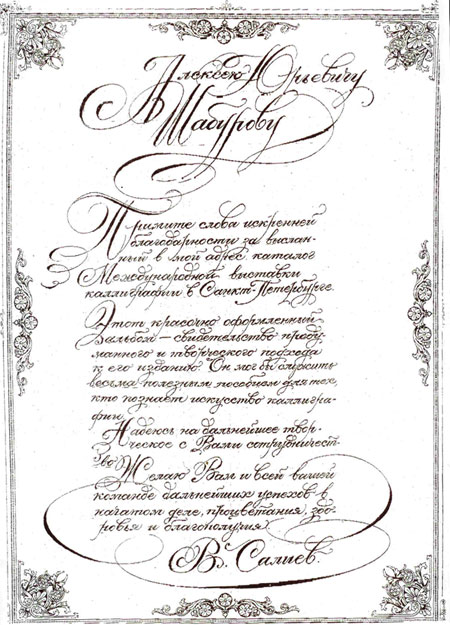 Алексею Юрьевичу
Шабурову
Примите слова искренней
благодарности за выслан-
ный в мой адрес каталог
Международной выставки
каллиграфии в Санкт-Петербурге.
Этот красочно оформленный
альбом – свидетельство проду-
манного и творческого подхода
к его изданию. Он мог бы служить
весьма полезным пособием для тех,
кто познает искусство каллигра-
фии.
Надеюсь на дальнейшее твор-
ческое с Вами сотрудничест-
во. Желаю Вам и всей вашей
команде дальнейших успехов в
начатом деле, процветания, здо-
ровья и благополучия.
Вс. Салиев.